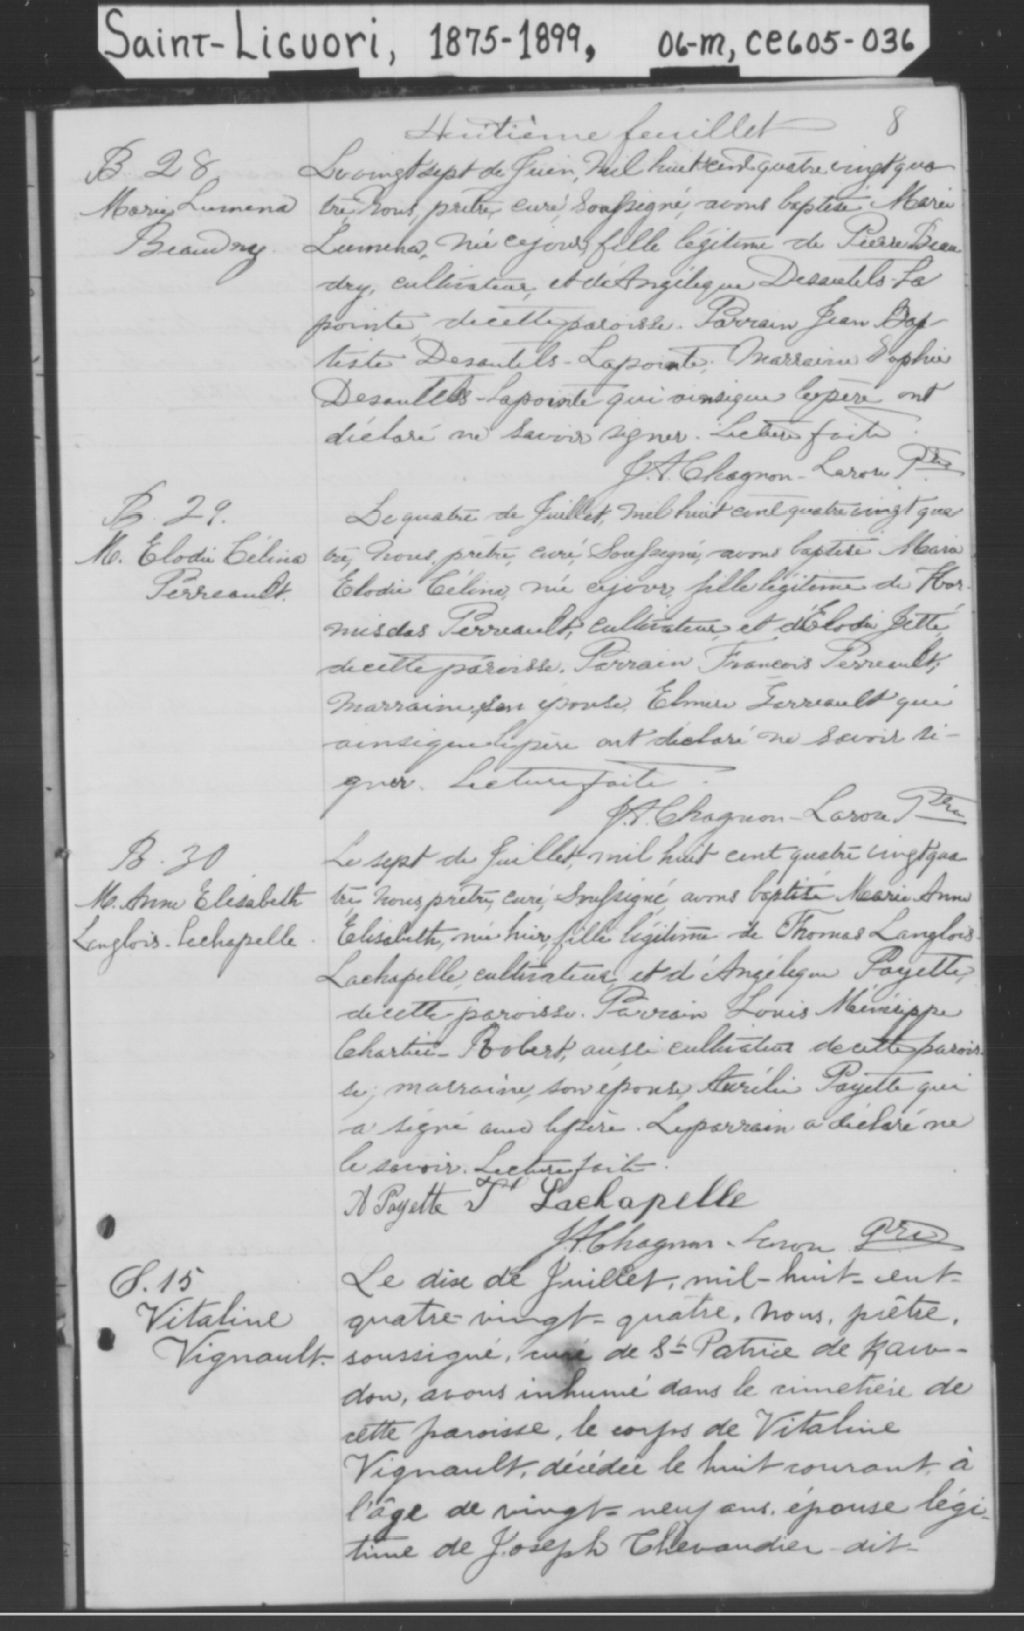 Saint-Liguori, 1875-1899, 06-m, ce605-036
Huitième feuillet 8
B. 28
Marie Lumena
Beaudry
Le vingt sept de Juin, mil huit cent quatre vingt qua
tre, Nous, prêtre, curé, Soussigné, avons baptisé Marie
Lumena, née ce jour, fille légitime de Pierre Beau
dry, cultivateur, et d'Angélique Desautels-La
pointe, de cette paroisse. Parrain Jean Bap
tiste Desautels-Lapointe; Marraine Sophie
Desautels-Lapointe qui ainsique le père ont
déclaré ne savoir signer. Lecture faite.
J.A. Chagnon-Larose Ptre
B. 29.
M. Elodie Célina
Perreault.
Le quatre de Juillet, mil huit cent quatre vingt qua
tre, Nous, prêtre, curé, Soussigné, avons baptisé Marie
Elodie Célina, née ce jour, fille légitime de Hor-
misdas Perreault, cultivateur et d'Elodie Jetté,
de cette paroisse. Parrain François Perreault,
Marraine, son épouse, Elmire qui
ainsique le père ont déclaré ne savoir si-
gner. Lecture faite.
J.A. Chagnon-Larose Ptre
B. 30
M. Anne Elisabeth
Langlois-Lachapelle.
Le sept de Juillet, mil huit cent quatre vingt qua
tre, Nous, prêtre, curé, Soussigné, avons baptisé Marie Anne
Elisabeth, née hier, fille légitime de Thomas Langlois-
Lachapelle, cultivateur, et d'Angélique Payette,
de cette paroisse. Parrain Louis
Chartier-Robert, aussi cultivateur de cette parois-
se; marraine, son épouse, Aurélie Payette qui
a signé avec le père. Le parrain a déclaré ne
le savoir. Lecture faite.
A Payette T Lachapelle
J.A. Chagnon-Larose Ptre
S. 15
Vitaline
Vignault.
Le dix de Juillet, mil-huit-cent-
quatre-vingt-quatre, nous, prêtre,
soussigné, curé de St Patrice de Raw-
don, avons inhumé dans le cimetière de
cette paroisse, le corps de Vitaline
Vignault, décédée le huit courant, à
l'âge de vingt-neuf ans, épouse légi-
time de Joseph Chevaudier-dit-